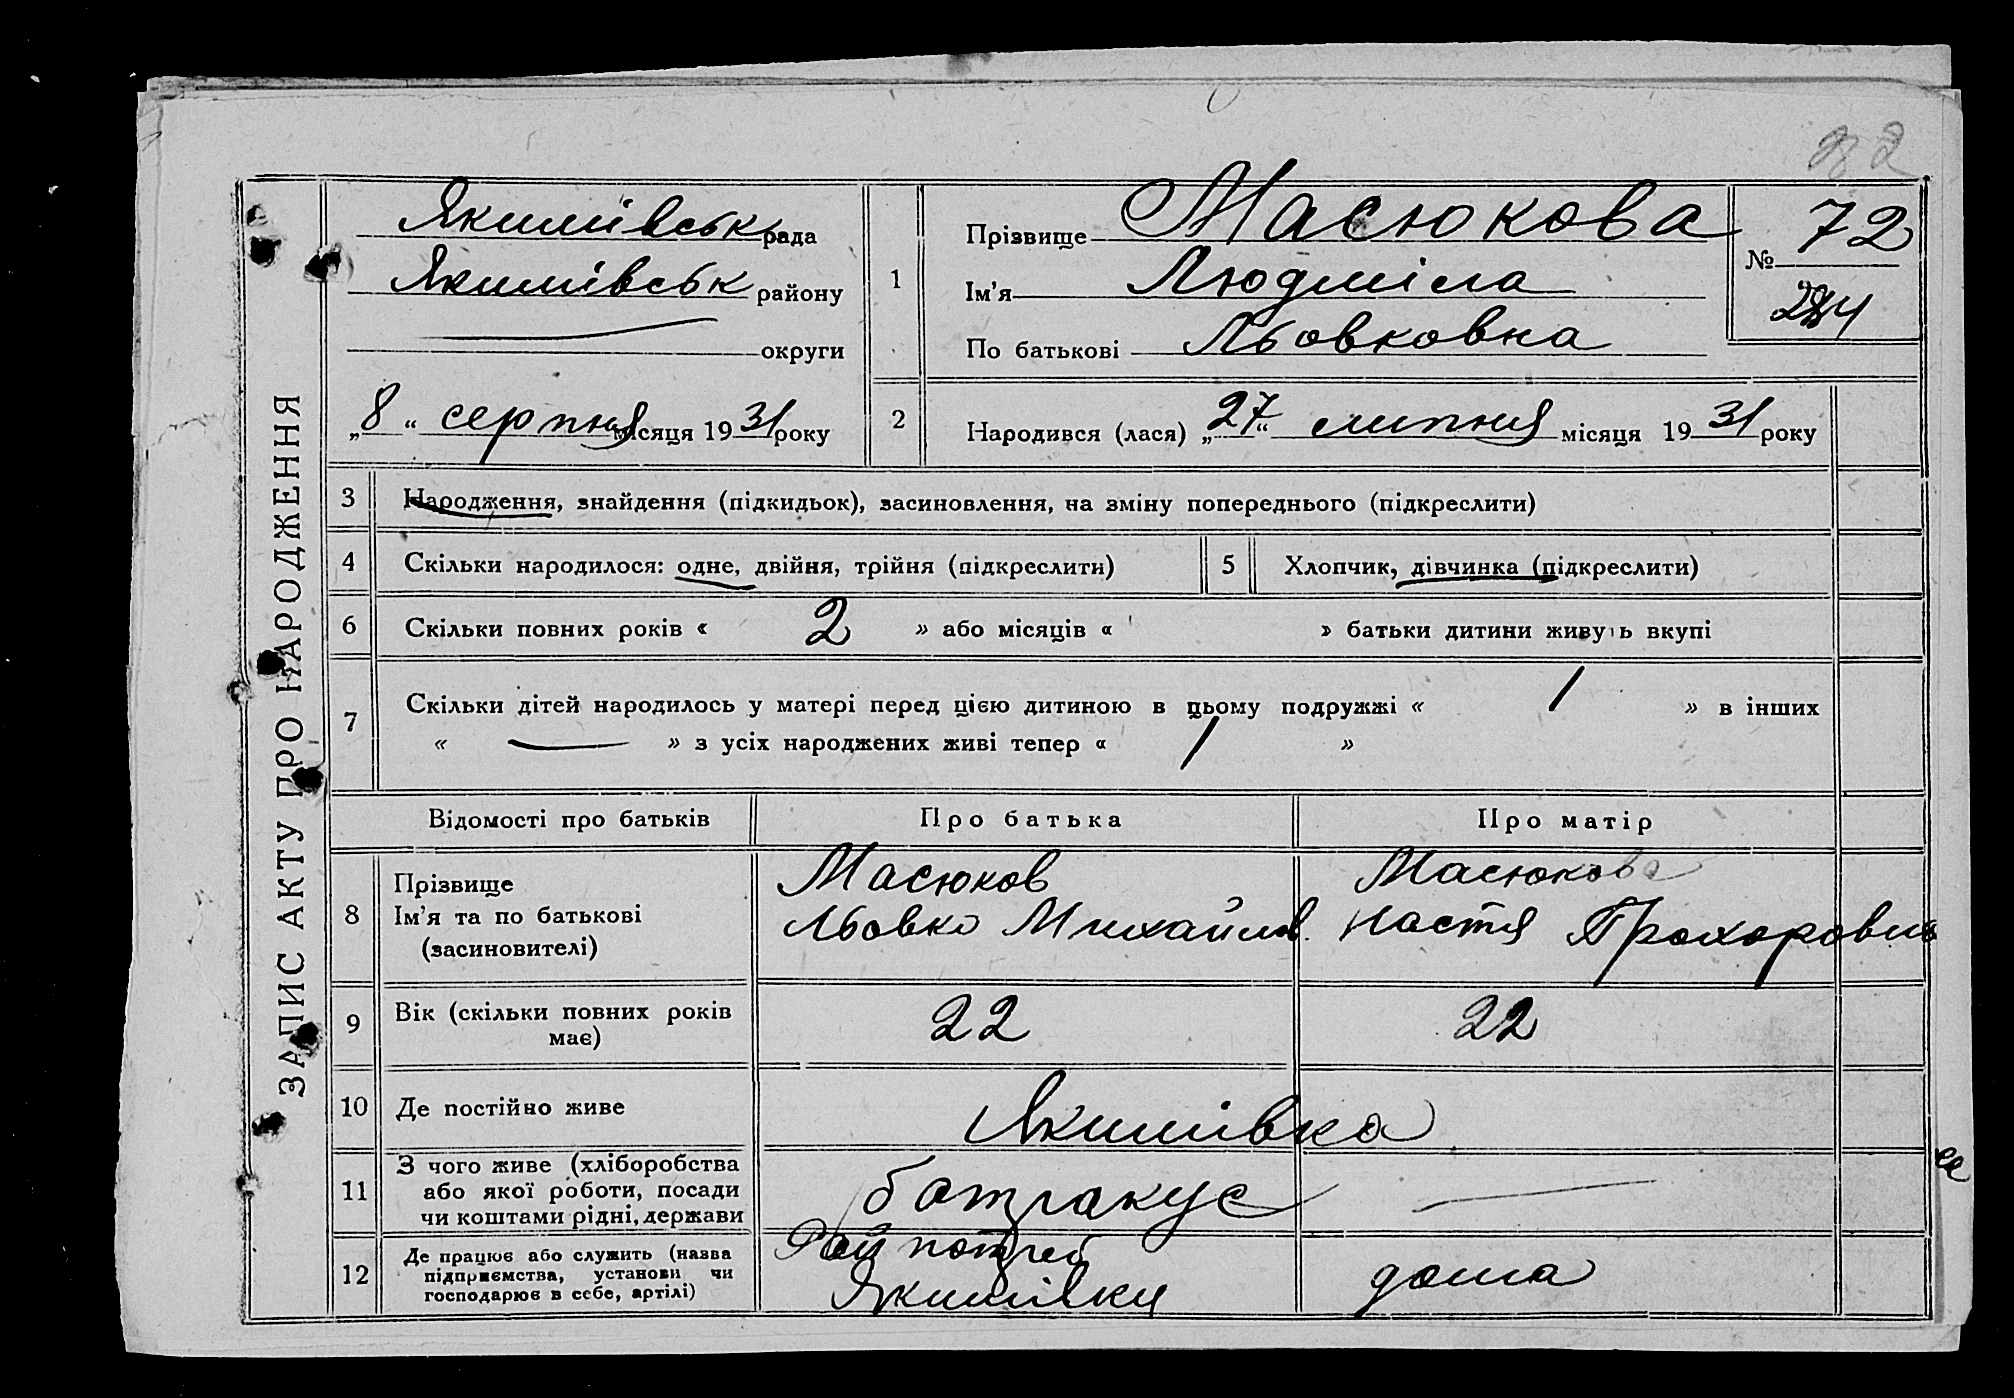 ЗАПИС АКТУ ПРО НАРОДЖЕННЯ
Якимівськ рада
Якимівськ району
округи
„8“ серпня місяця 1931 року
1
Прізвище Масюкова
Ім’я Людміла
По батькові Льовковна
№ 72
2
Народився (лася) „27“ липня місяця 1931 року
3 Народження, знайдення (підкидьок), засиновлення, на зміну попереднього (підкреслити)
4 Скільки народилося: одне, двійня, трійня (підкреслити) 5 Хлопчик, дівчинка (підкреслити)
6 Скільки повних років « 2 » або місяців « » батьки дитини живуть вкупі
7 Скільки дітей народилось у матері перед цією дитиною в цьому подружжі « 1 » в інших
« — » з усіх народжених живі тепер « 1 »
Відомості про батьків Про батька Про матір
8 Прізвище Масюков Масюкова
Ім’я та по батькові Льовко Михайлов. Настя Прохоровна
(засиновителі)
9 Вік (скільки повних років має) 22 22
10 Де постійно живе Якимівка
11 З чого живе (хліборобства
або якої роботи, посади
чи коштами рідні, держави
батракує —
12 Де працює або служить (назва
підприємства, установи чи
господарює в себе, артілі)
Рай потреб
Якимівки дома